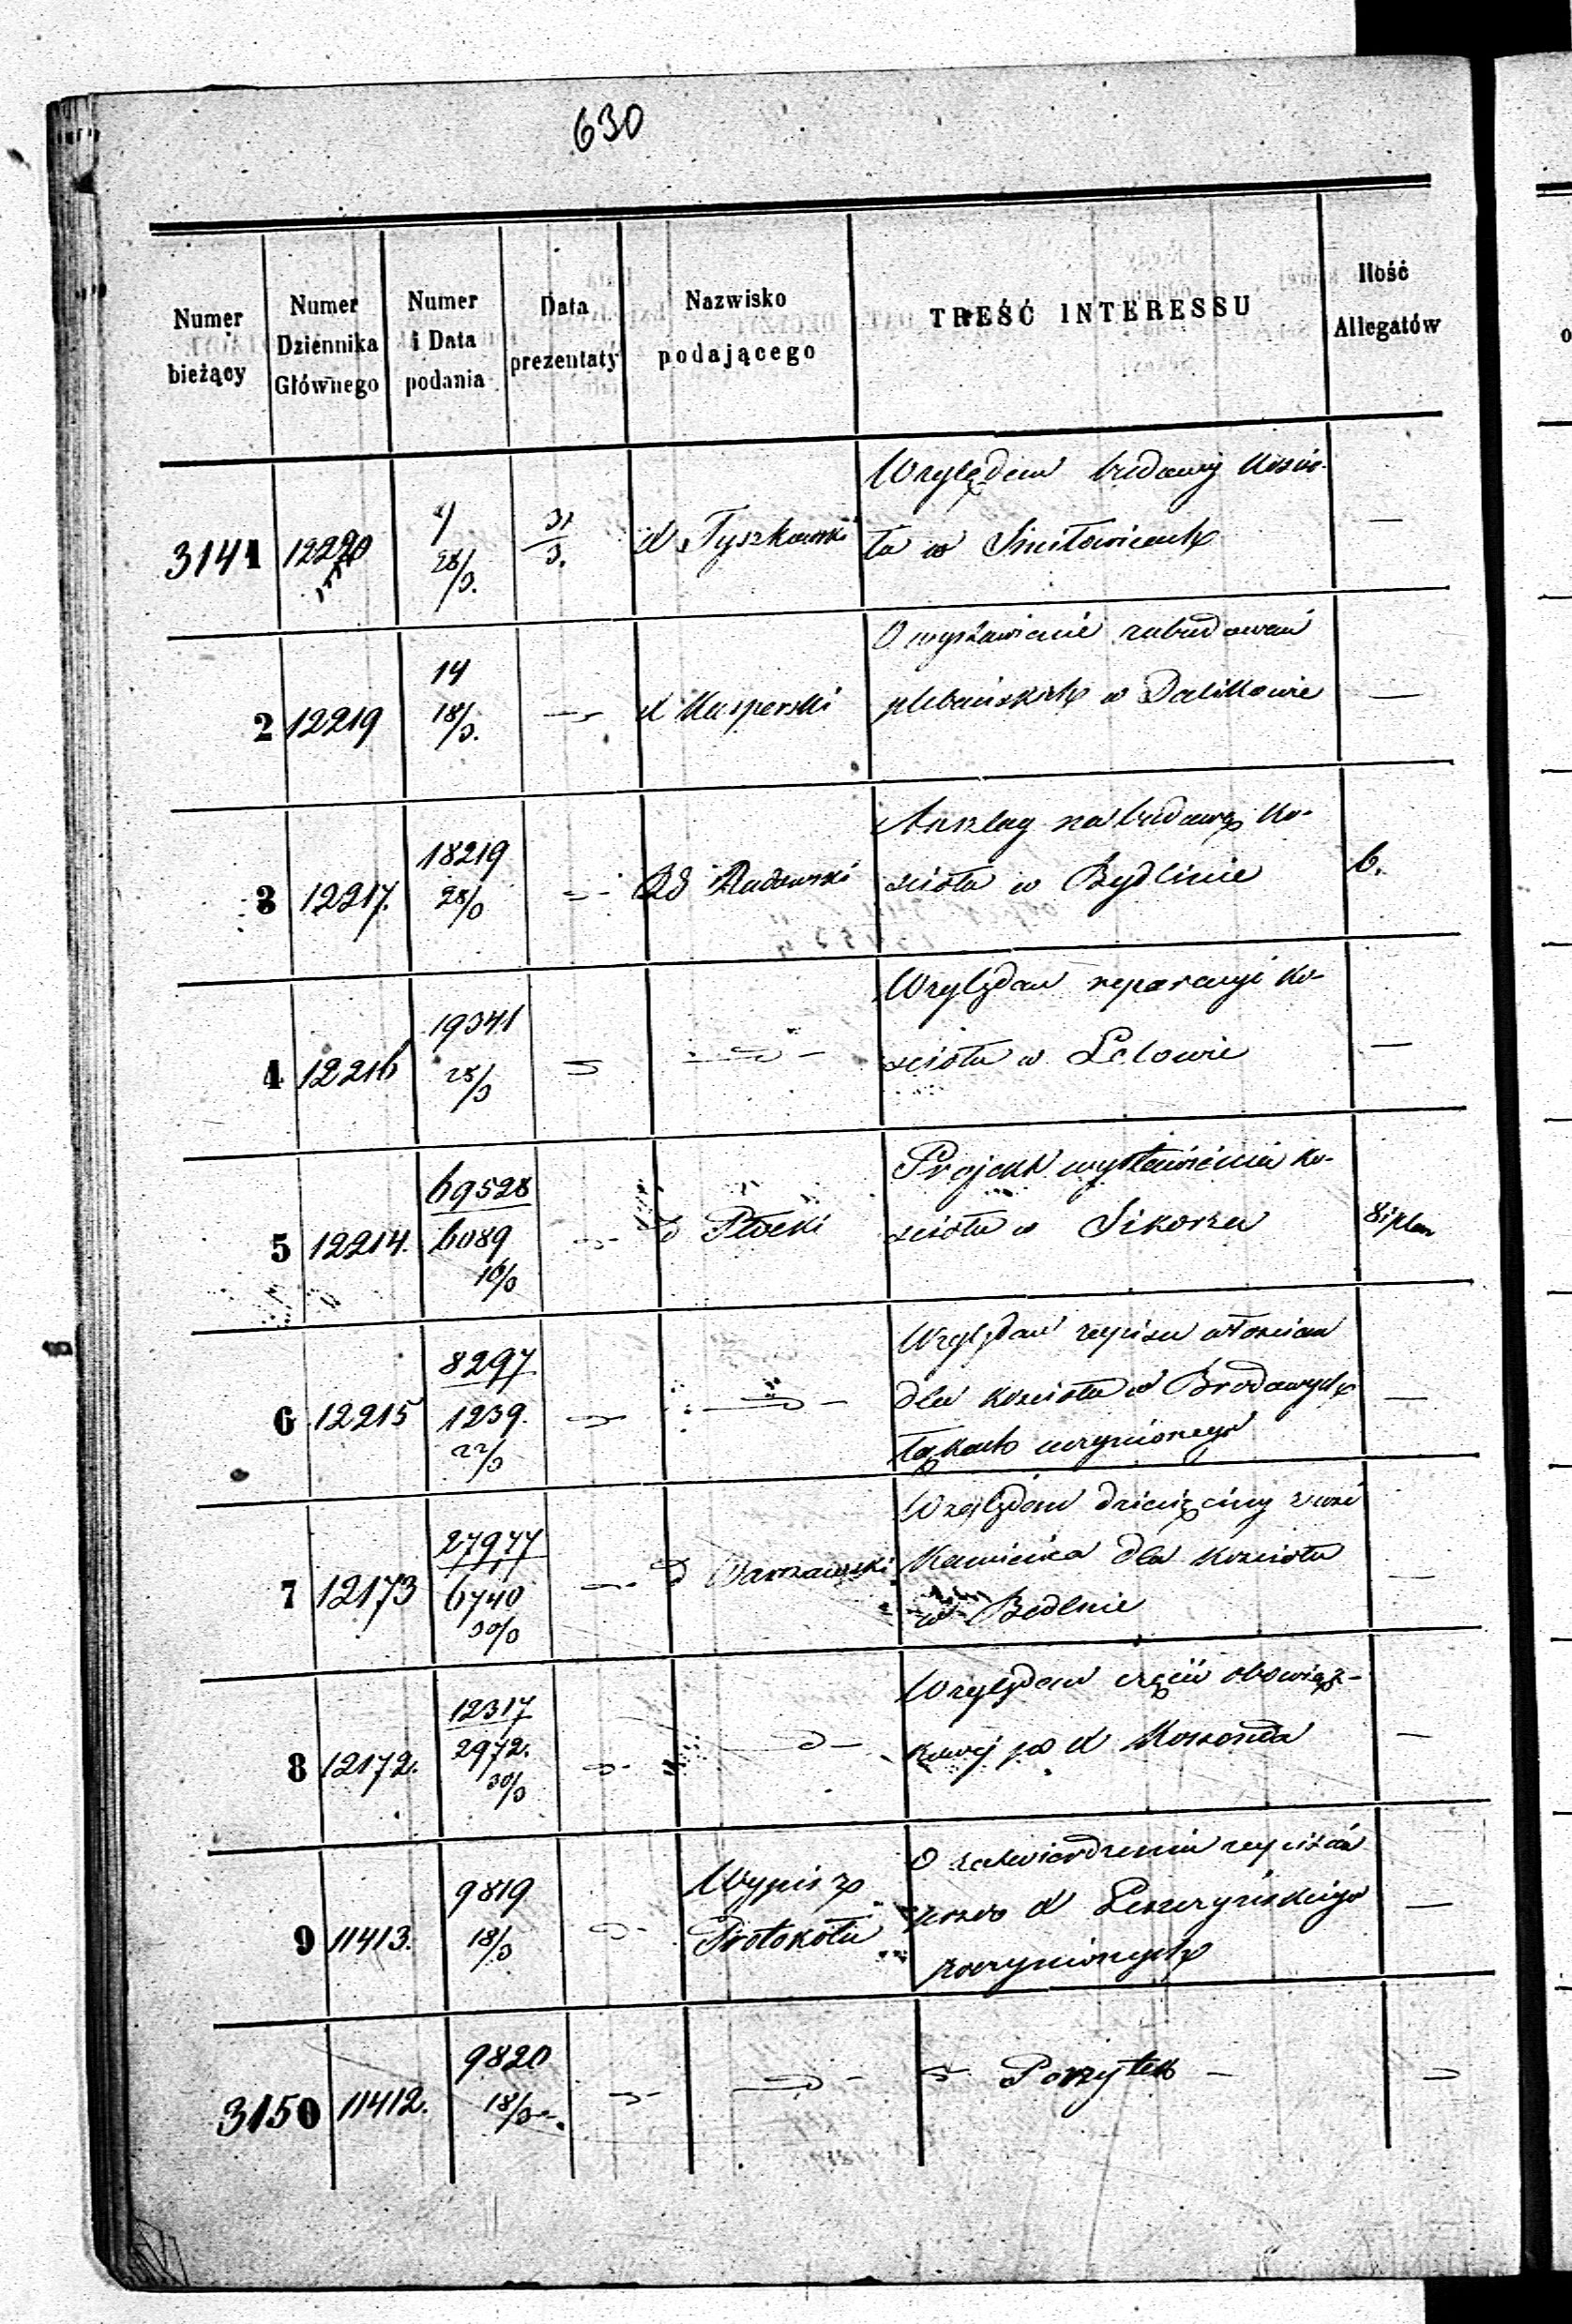 630
Numer bieżący
Numer Dziennika Głównego
Numer i Data podania
Data prezentaty
Nazwisko podającego
TREŚĆ INTERESSU
Ilość Allegatów
3141 12220 28/3. 31/3. Tyszkowski Względem budowy Kościo-
ła w —
2 12219 14 18/3. X Kasperski O wystawienie zabudowań
plebańskich w Dalikowie —
3 12217. 18219 28/3 Rd Radomski Anszlag na budowę Ko-
ścioła w Bydlinie 6.
4 12216 19341 28/3 Względem reparacyi Ko-
ścioła w Lelowie —
5 12214. 69528 6089 10/3 Płocki Projekt wystawienia ko-
ścioła w Sikorzu 8 i plan
6 12215 8297 1239. 22/3 Względem zapisu włościan
dla kościoła w Brodowych
Łąkach uczynionego —
7 12173 27977 6740 30/3 Warszawski Względem dziesięciny z wsi
Kamieńca dla kościoła
w Bedlnie —
8 12172. 12317 2972. 30/3 Względem części obowiąz-
kowej po X —
9 11413. 9819 18/3 Wypis z
Protokołu O zatwierdzenie zapisów
przez X Leszczyńskiego
poczynionych —
3150 11412. 9820 18/3 Pożytek —